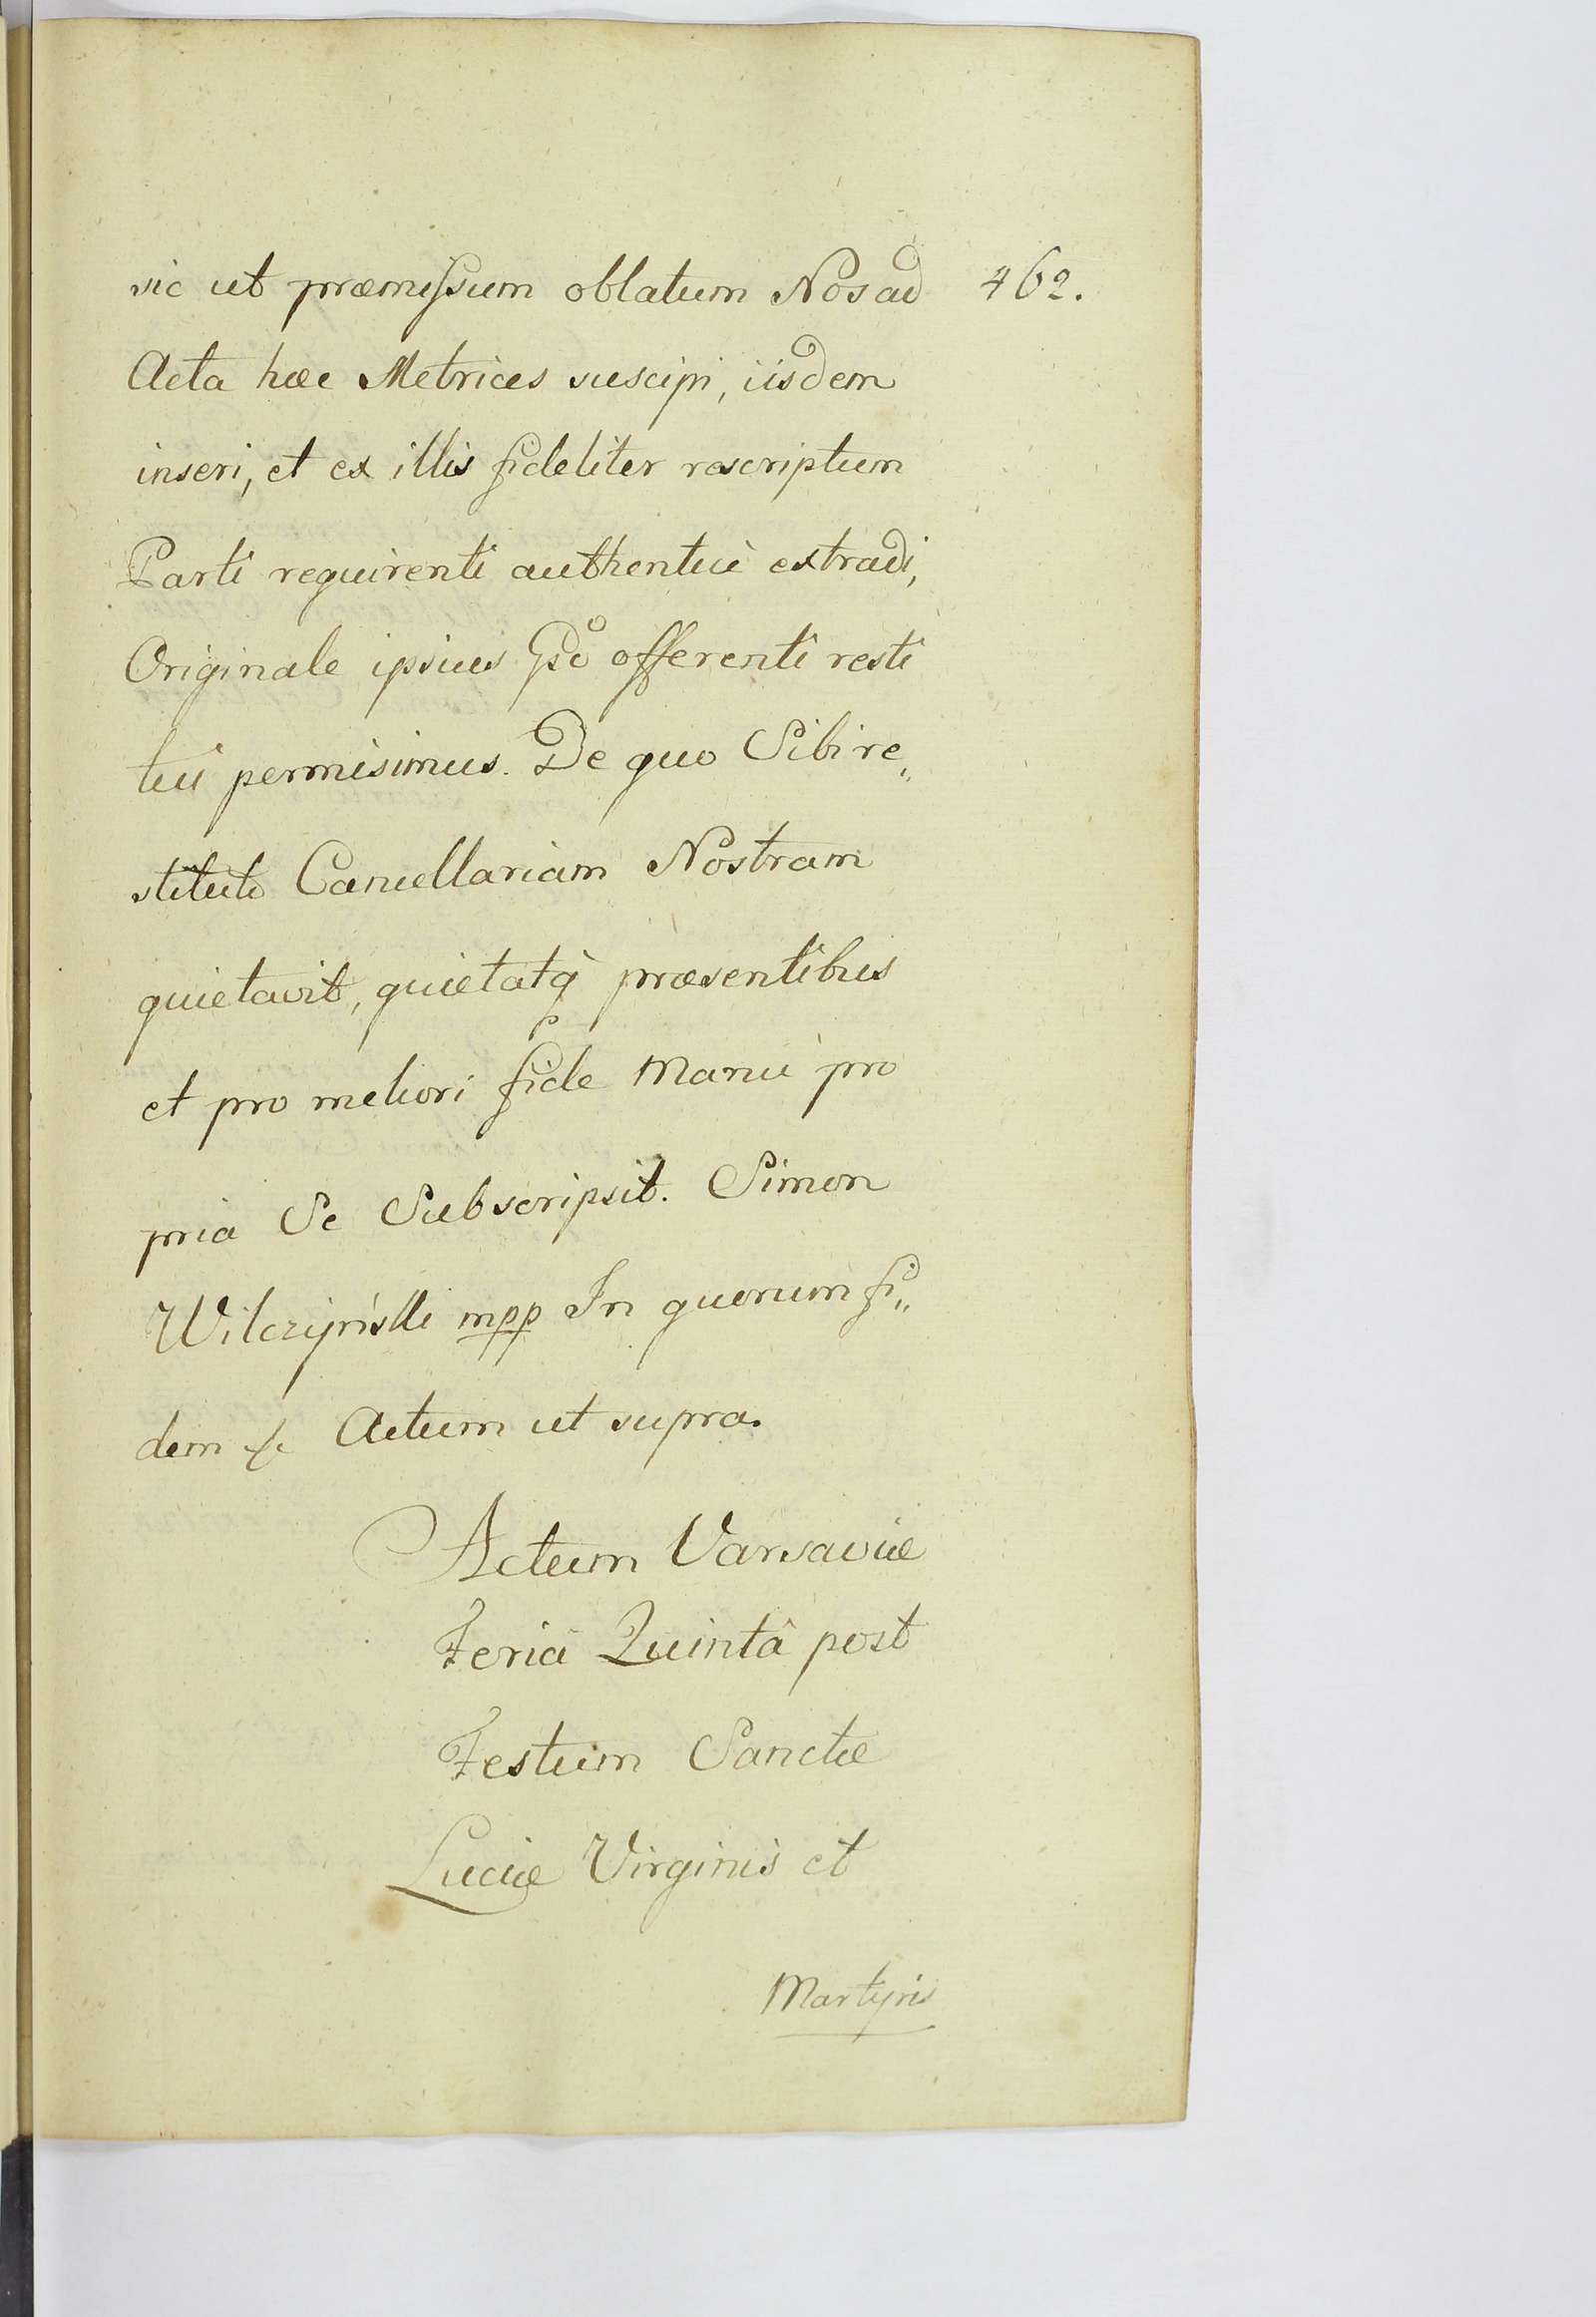 sic ut præmissum oblatum Nos ad 462.
Acta hæc Metrices suscipi, iisdem
inseri, et ex illis fideliter rescriptum
Parti requirenti authenticè extradi,
Originale ipsius Gso offerenti resti
tui permisimus. De quo Sibi re„
stituto Cancellariam Nostram
quietavit, quietatq̀ præsentibus
et pro meliori fide Manu pro
pria Se Subscripsit. Simon
Wilczyński mpp In quorum fi„
dem Actum ut supra.
Actum Varsaviæ
Feriâ Quintâ post
Festum Sanctæ
Luciæ Virginis et
Martyris